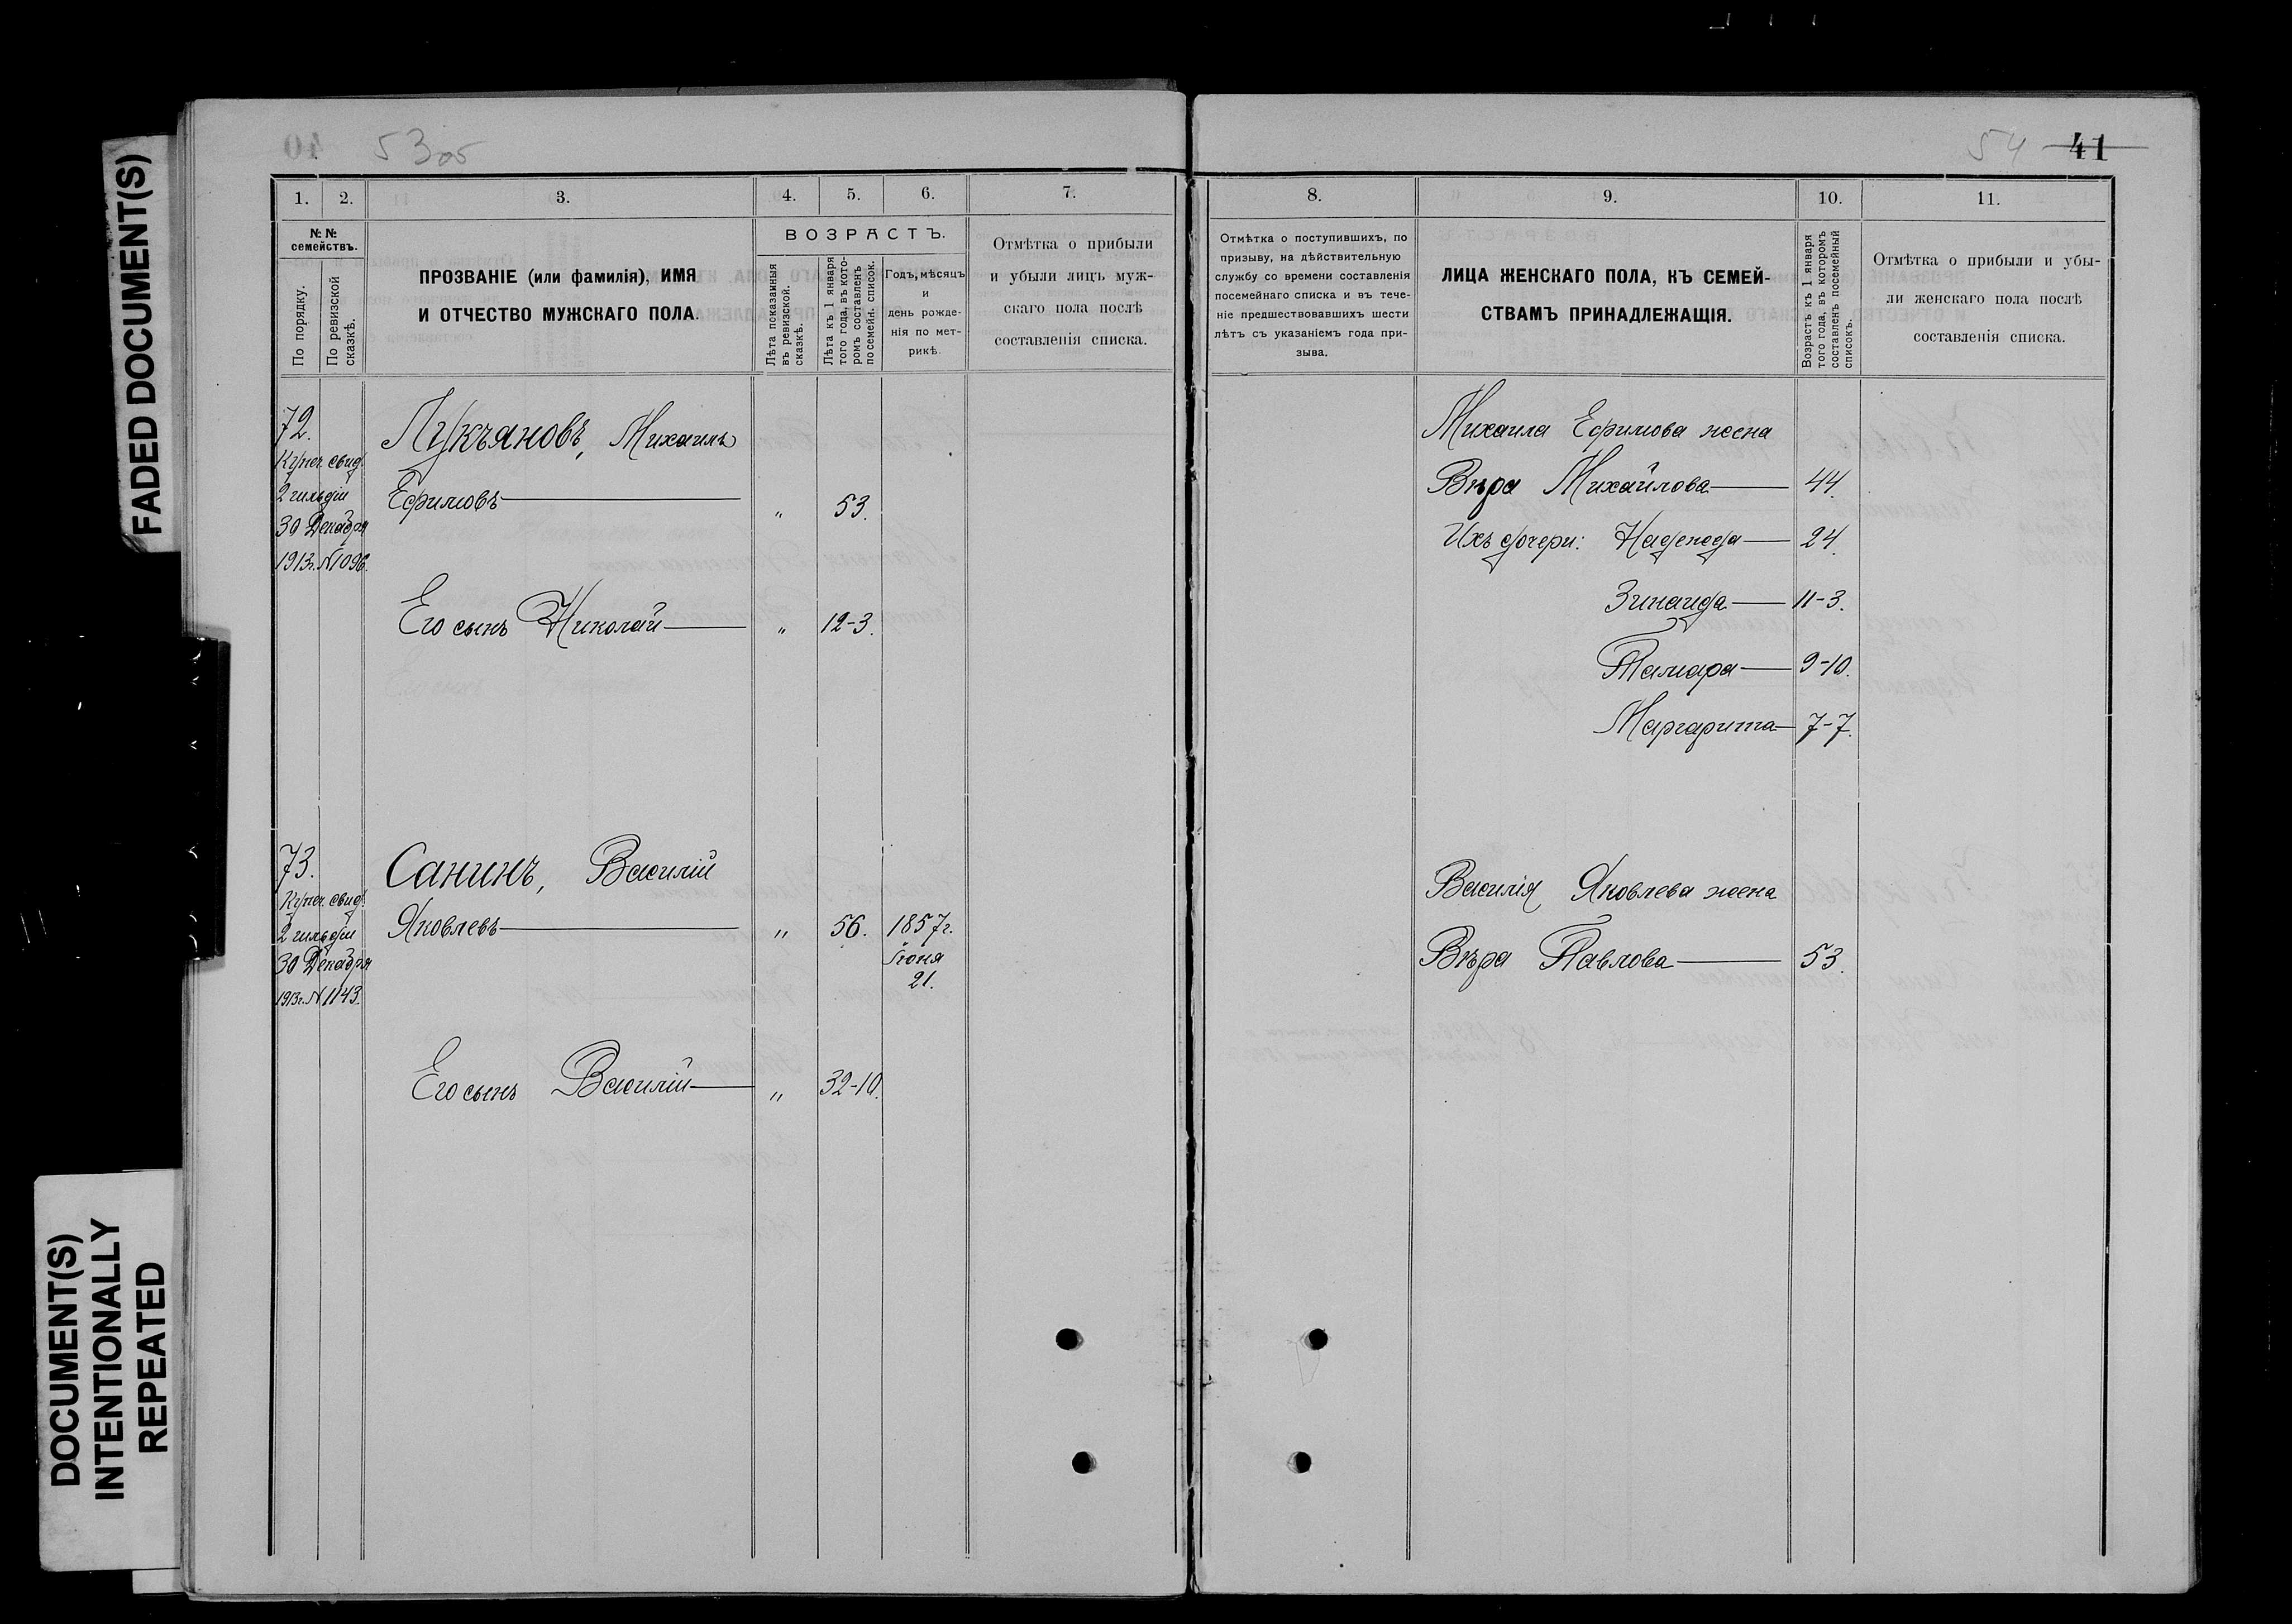 FADED DOCUMENT(S)
DOCUMENT(S)
INTENTIONALLY
REPEATED
53об
1. 2. 3. 4. 5. 6. 7.
№ №
семействъ.
По порядку.
По ревизской
сказкѣ.
ПРОЗВАНІЕ (или фамилія), ИМЯ
И ОТЧЕСТВО МУЖСКАГО ПОЛА.
ВОЗРАСТЪ.
Лѣта показанныя
въ ревизской.
сказкѣ.
Лѣта къ 1 января
того года, въ кото-
ромъ составленъ
посемейн. список.
Годъ, мѣсяцъ
и
день рожде-
нія по мет-
рикѣ.
Отмѣтка о прибыли
и убыли лицъ муж-
скаго пола послѣ
составленія списка.
72.
Купеч. свид.
2 гильдіи
30 Декабря
1913г. № 1096.
Лукъяновъ, Михаилъ
Ефимовъ — „ 53.
Его сынъ Николай — „ 12-3.
73.
Купеч. свид.
2 гильдіи
30 Декабря
1913г. № 1143.
Санинъ, Василій
Яковлевъ — „ 56. 1857г.
Іюня
21.
Его сынъ Василій — „ 32-10.
54 41
8. 9. 10. 11.
Отмѣтка о поступившихъ, по
призыву, на дѣйствительную
службу со времени составленія
посемейнаго списка и въ тече-
ніе предшествовавшихъ шести
лѣтъ съ указаніемъ года при-
зыва.
ЛИЦА ЖЕНСКАГО ПОЛА, КЪ СЕМЕЙ-
СТВАМЪ ПРИНАДЛЕЖАЩІЯ.
Возрастъ къ 1 января
того года, въ которомъ
составленъ посемейный
списокъ.
Отмѣтка о прибыли и убы-
ли женскаго пола послѣ
составленія списка.
Михаила Ефимова жена
Вѣра Михайлова — 44.
Ихъ дочери: Надежда — 24.
Зинаида — 11-3.
Тамара — 9-10.
Маргарита — 7-7.
Василія Яковлева жена
Вѣра Павлова — 53.